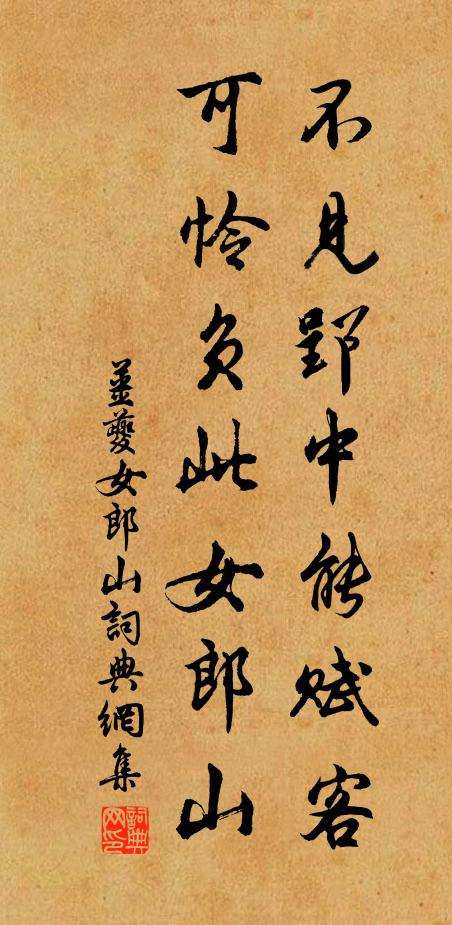 不見郢中能賦客
可怜負此女郎山
薑夔女郎山詞典網集
詞典
网印